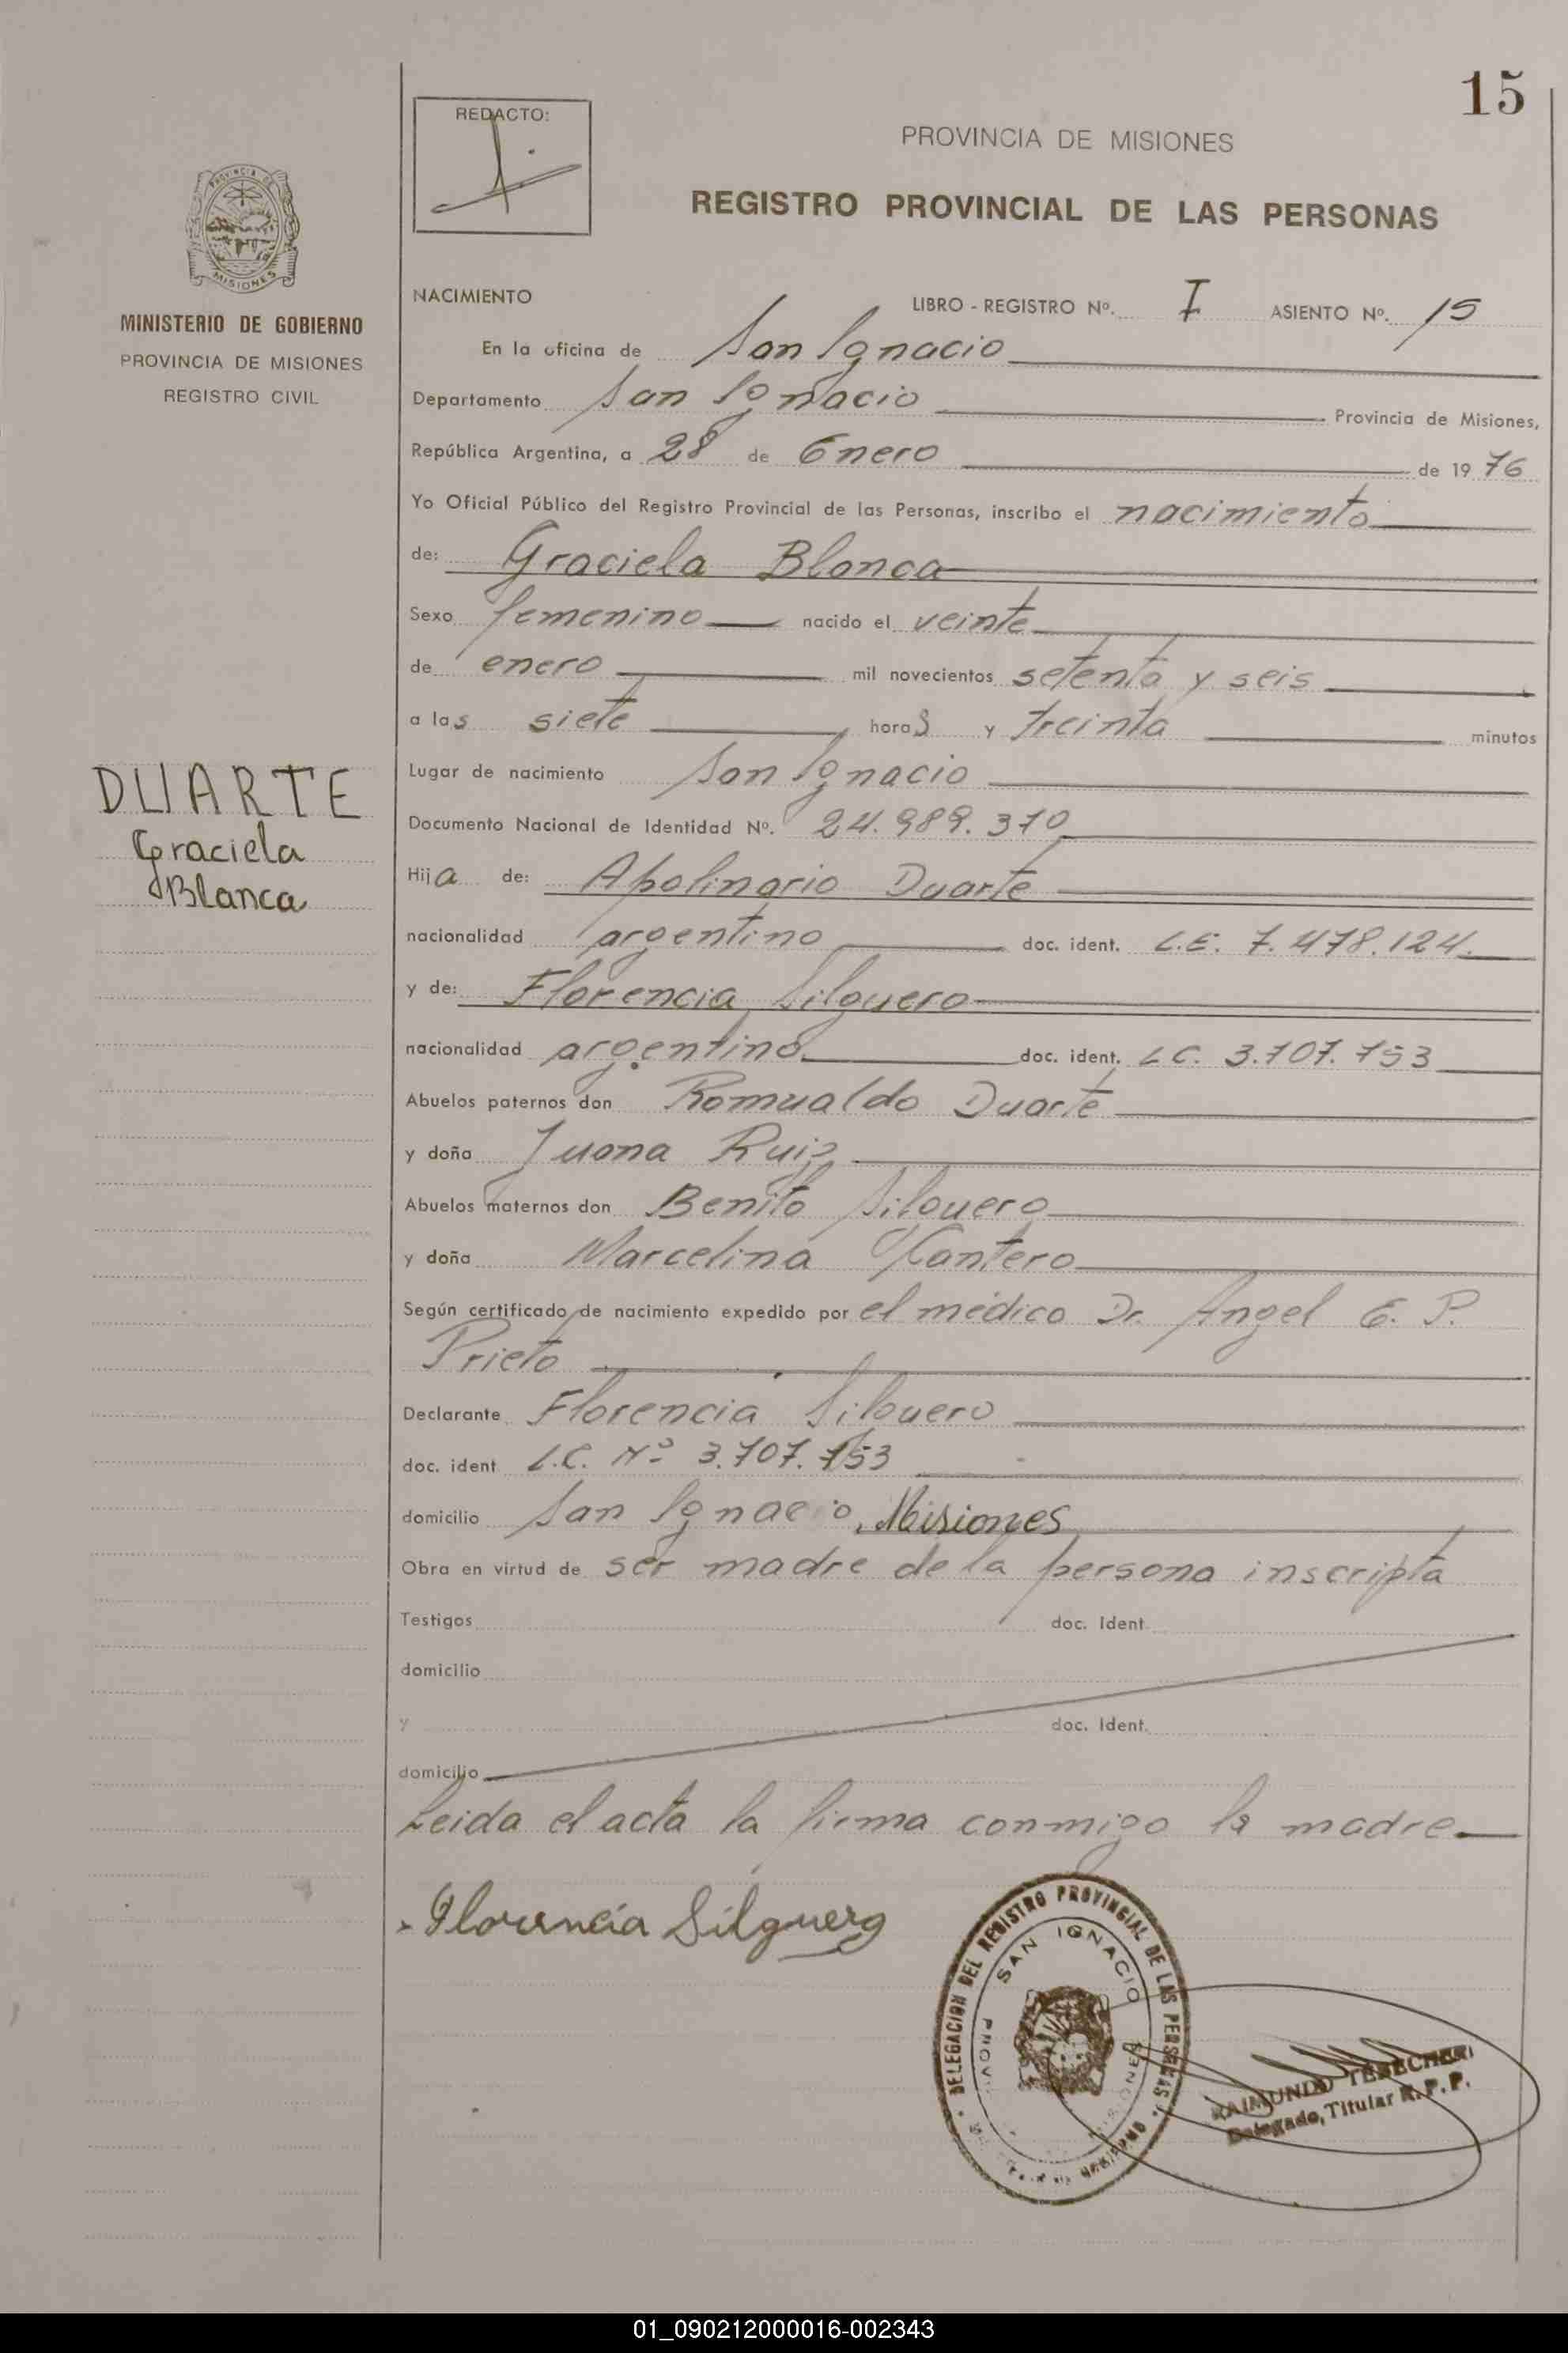 15
REDACTO:
PROVINCIA DE MISIONES
REGISTRO PROVINCIAL DE LAS PERSONAS
PROVINCIA DE
MISIONES
MINISTERIO DE GOBIERNO
PROVINCIA DE MISIONES
REGISTRO CIVIL
NACIMIENTO LIBRO - REGISTRO Nº. I ASIENTO Nº. 15
En la oficina de San Ignacio
Departamento San Ignacio Provincia de Misiones,
República Argentina, a 28 de Enero de 1976
Yo Oficial Público del Registro Provincial de las Personas, inscribo el nacimiento
de: Graciela Blanca
Sexo femenino nacido el veinte
de enero mil novecientos setenta y seis
a las siete horas y treinta minutos
Lugar de nacimiento San Ignacio
DUARTE
Graciela
Blanca
Documento Nacional de Identidad Nº. 24.989.310
Hija de: Apolinario Duarte
nacionalidad argentino doc. ident. L.E. 7.478.124.
y de: Florencia Silguero
nacionalidad argentina doc. ident. L.C. 3.707.753
Abuelos paternos don Romualdo Duarte
y doña Juana Ruiz
Abuelos maternos don Benito Silguero
y doña Marcelina Cantero
Según certificado de nacimiento expedido por el médico Dr. Angel E. P.
Prieto
Declarante Florencia Silguero
doc. ident L.C. Nº 3.707.753
domicilio San Ignacio, Misiones
Obra en virtud de ser madre de la persona inscripta
Testigos doc. Ident.
domicilio
y doc. Ident.
domicilio
Leida el acta la firma conmigo la madre
Florencia Silguero
DELEGACION DEL REGISTRO PROVINCIAL DE LAS PERSONAS
SAN IGNACIO
RAIMUNDO
Delegado, Titular R. P. P.
01_090212000016-002343